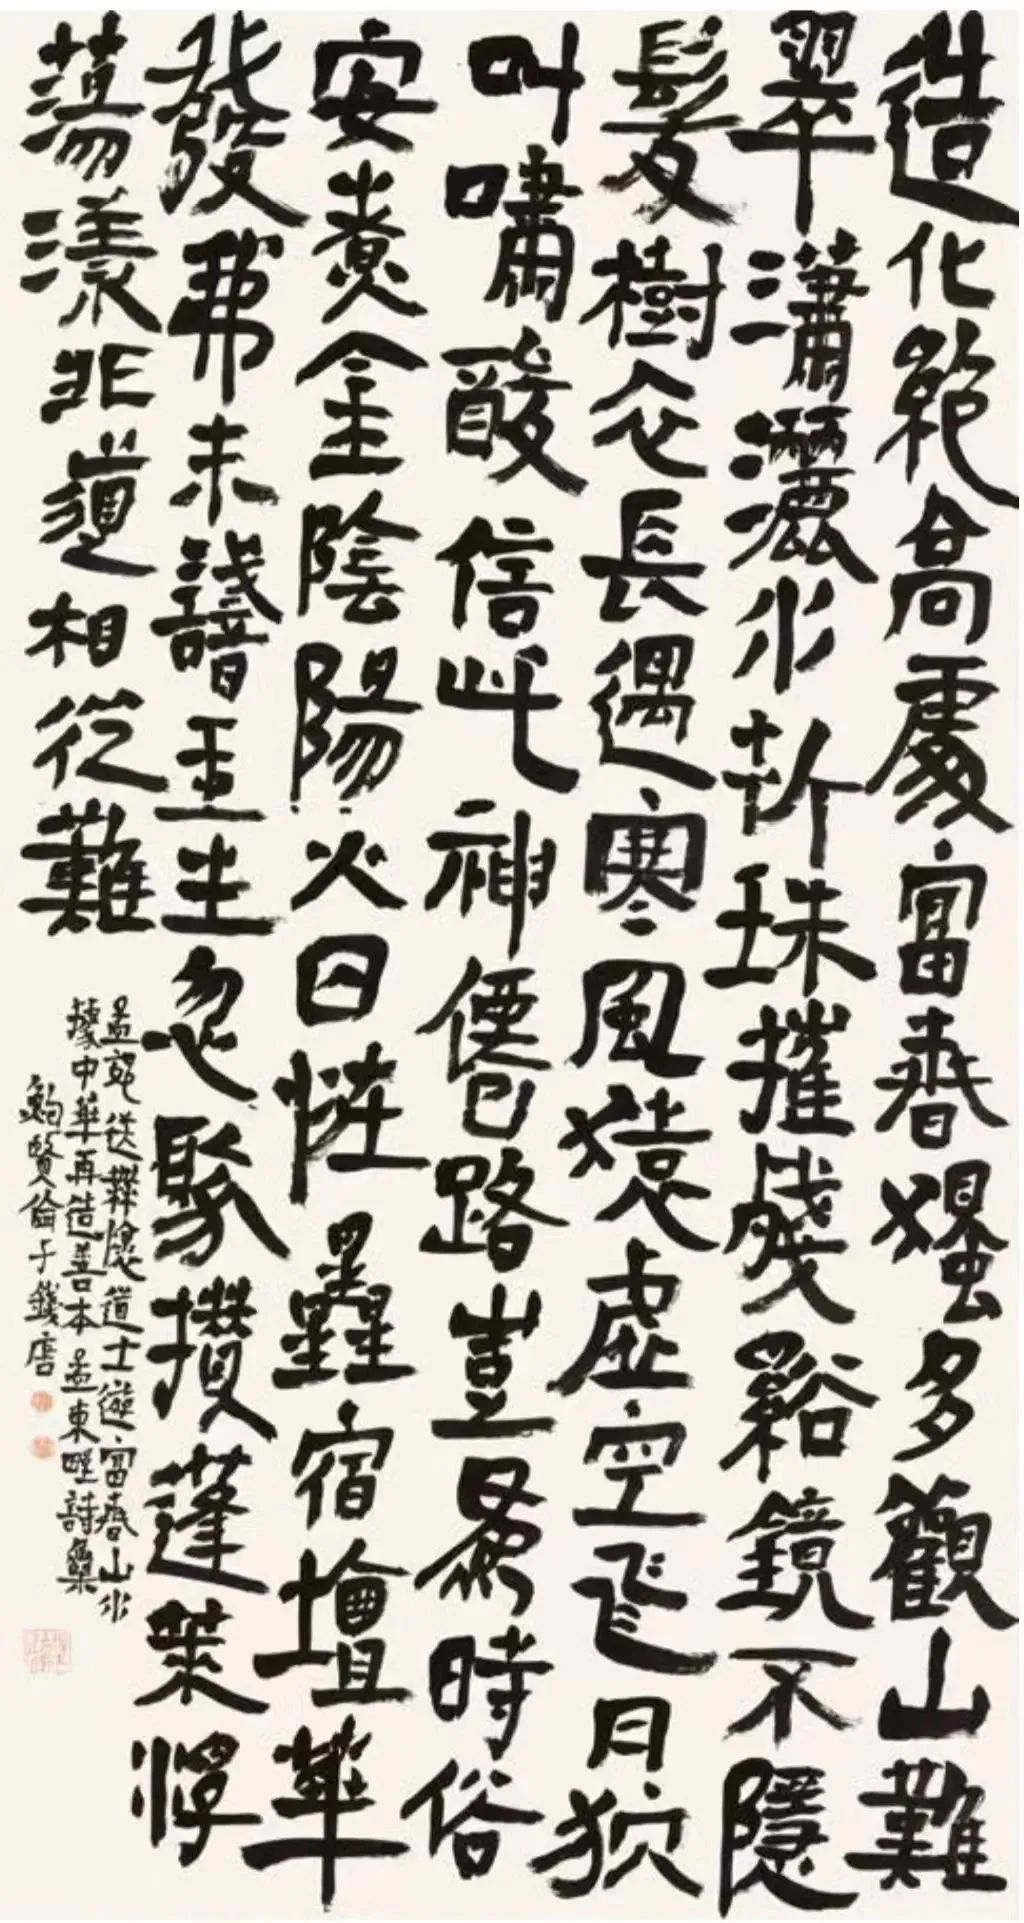 造化絕高處富春獨多觀山難
翠瀟灑水折珠摧殘谿鏡不隱
髮樹衣長遇寒風猿虛空飛月狖
叫嘯酸信此神僊路豈爲時俗
安煮金陰陽火囚怪曐宿壇華
發我未識玉生忽聚攢蓬萊浮
蕩漾非道相從難
孟郊送無懷道士遊富春山水
據中華再造善本孟東野詩集
鮑賢倫于錢唐